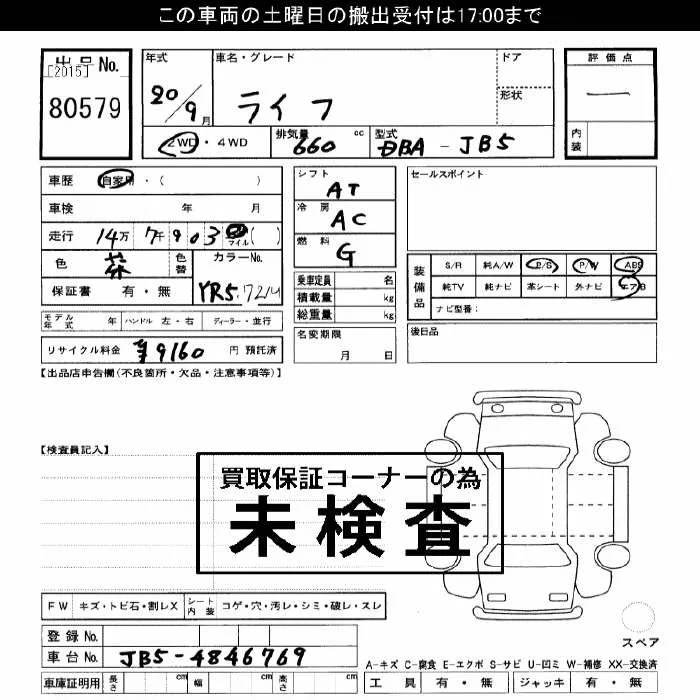 この車両の土曜日の搬出受付は17:00まで
出品 No.
[2015]
80579
年式
20/9月
車名・グレード
ライフ
ドア
形状
評価点
一
内装
2WD・4WD
排気量 660 cc
型式 DBA - JB5
車歴 自家用・( )
車検 年 月
走行 14万 7千 903 マイル ( )
色 茶 色替 カラーNo.
保証書 有・無 YR5
モデル年式 年 ハンドル 左・右 ディーラー・並行
リサイクル料金 ¥9160 円 預託済
シフト AT
冷房 AC
燃料 G
乗車定員 名
積載量 kg
総重量 kg
名変期限
月 日
セールスポイント
装備品
S/R 純A/W P/S P/W ABS
純TV 純ナビ 革シート 外ナビ エアB
ナビ型番:
後日品
【出品店申告欄(不良箇所・欠品・注意事項等)】
【検査員記入】
買取保証コーナーの為
未検査
FW キズ・トビ石・割レX シート内装 コゲ・穴・汚レ・シミ・破レ・スレ
登録 No.
車台 No. JB5-4846769
車庫証明用 長さ cm 幅 cm 高さ cm
スペア
A-キズ C-腐食 E-エクボ S-サビ U-凹ミ W-補修 XX-交換済
工具 有・無 ジャッキ 有・無